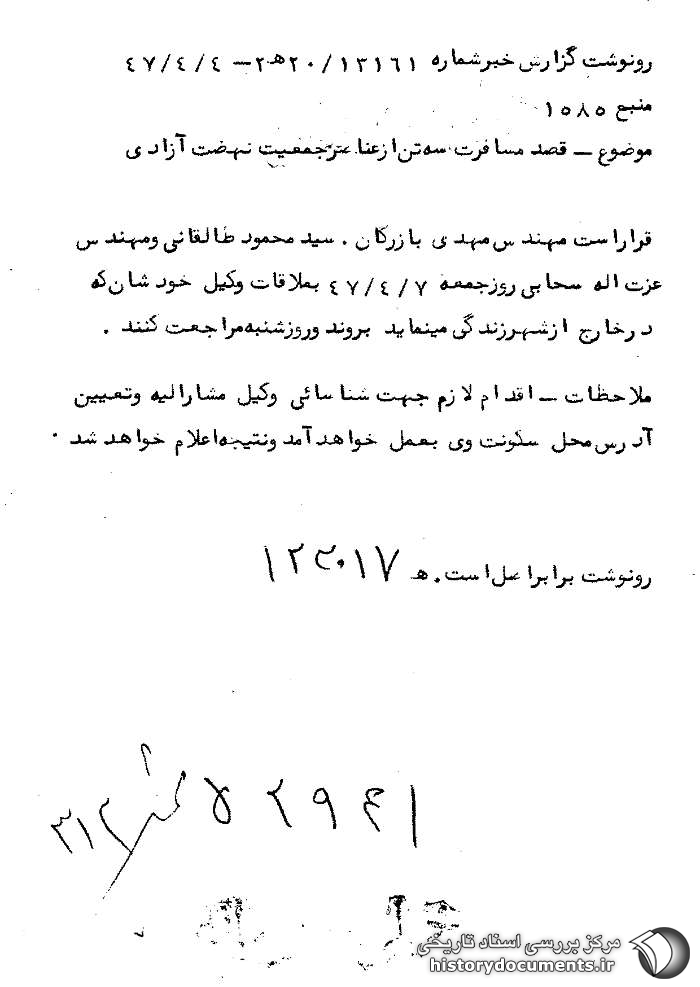 رونوشت گزارش خبرشماره ۲۰/۱۳۱۶۱ه۲ – ۴۷/۴/۴
منبع ۱۵۸۵
موضوع – قصد مسافرت سه تن ازعناصرجمعیت نهضت آزادی
قراراست مهندس مهدی بازرگان . سید محمود طالقانی ومهندس
عزت اله سحابی روزجمعه ۴۷/۴/۷ بملاقات وکیل خودشان که
درخارج ازشهرزندگی مینماید بروند وروزشنبه مراجعت کنند .
ملاحظات – اقدام لازم جهت شناسائی وکیل مشارالیه وتعیین
آدرس محل سکونت وی بعمل خواهدآمد ونتیجه اعلام خواهدشد .
رونوشت برابراصل است . ه
۳۱۲
مرکز بررسی اسناد تاریخی
historydocuments.ir